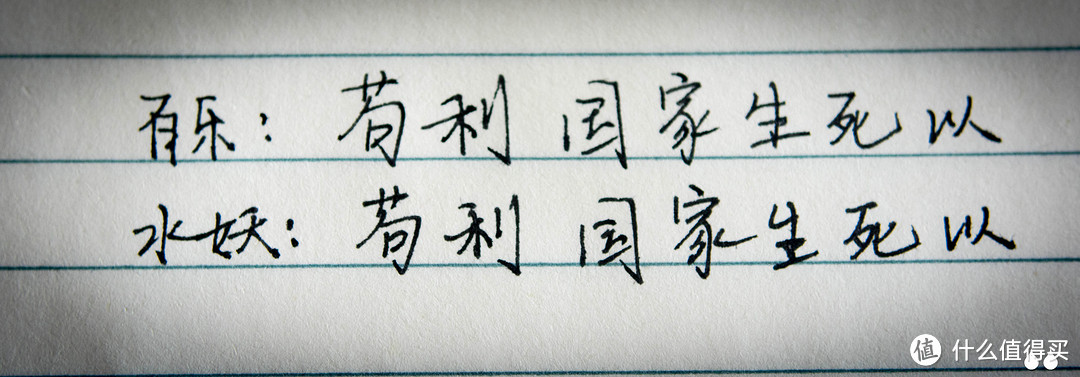 有乐：苟利国家生死以
水妖：苟利国家生死以
值 什么值得买